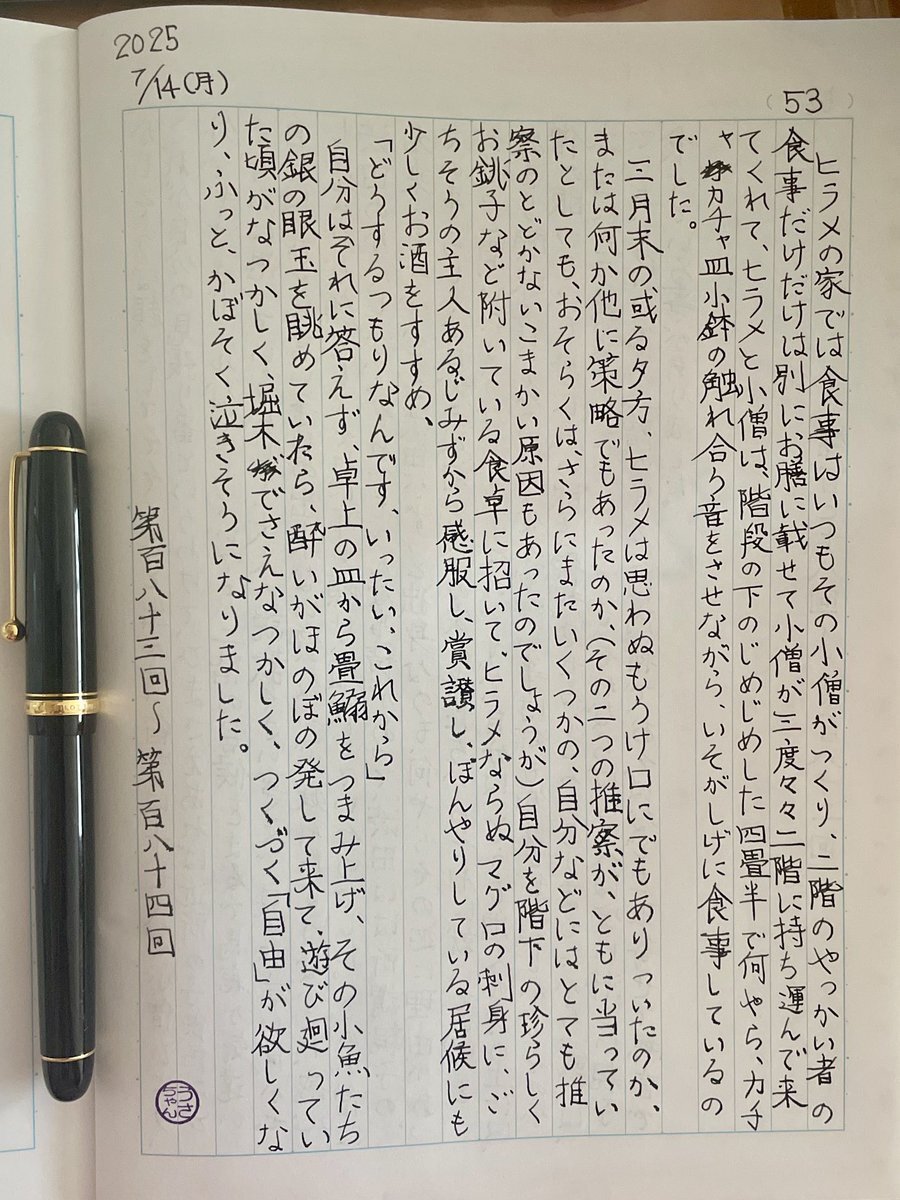 2025
7/14(月)
53
ヒラメの家では食事はいつもその小僧がつくり、二階のやっかい者の
食事だけだけは別にお膳に載せて小僧が三度々々二階に持ち運んで来
てくれて、ヒラメと小僧は、階段の下のじめじめした四畳半で何やら、カチ
ャカチャ皿小鉢の触れ合う音をさせながら、いそがしげに食事しているの
でした。
三月末の或る夕方、ヒラメは思わぬもうけ口にでもありついたのか、
または何か他に策略でもあったのか、(その二つの推察が、ともに当ってい
たとしても、おそらくは、さらにまたいくつかの、自分などにはとても推
察のとどかないこまかい原因もあったのでしょうが)自分を階下の珍らしく
お銚子など附いている食卓に招いて、ヒラメならぬマグロの刺身に、ご
ちそうの主人あるじみずから感服し、賞讃し、ぼんやりしている居候にも
少しくお酒をすすめ、
「どうするつもりなんです、いったい、これから」
自分はそれに答えず、卓上の皿から畳鰯をつまみ上げ、その小魚たち
の銀の眼玉を眺めていたら、酔いがほのぼの発して来て、遊び廻ってい
た頃がなつかしく、堀木でさえなつかしく、つくづく「自由」が欲しくな
り、ふっと、かぼそく泣きそうになりました。
第百八十三回～第百八十四回
うさ
ちゃん